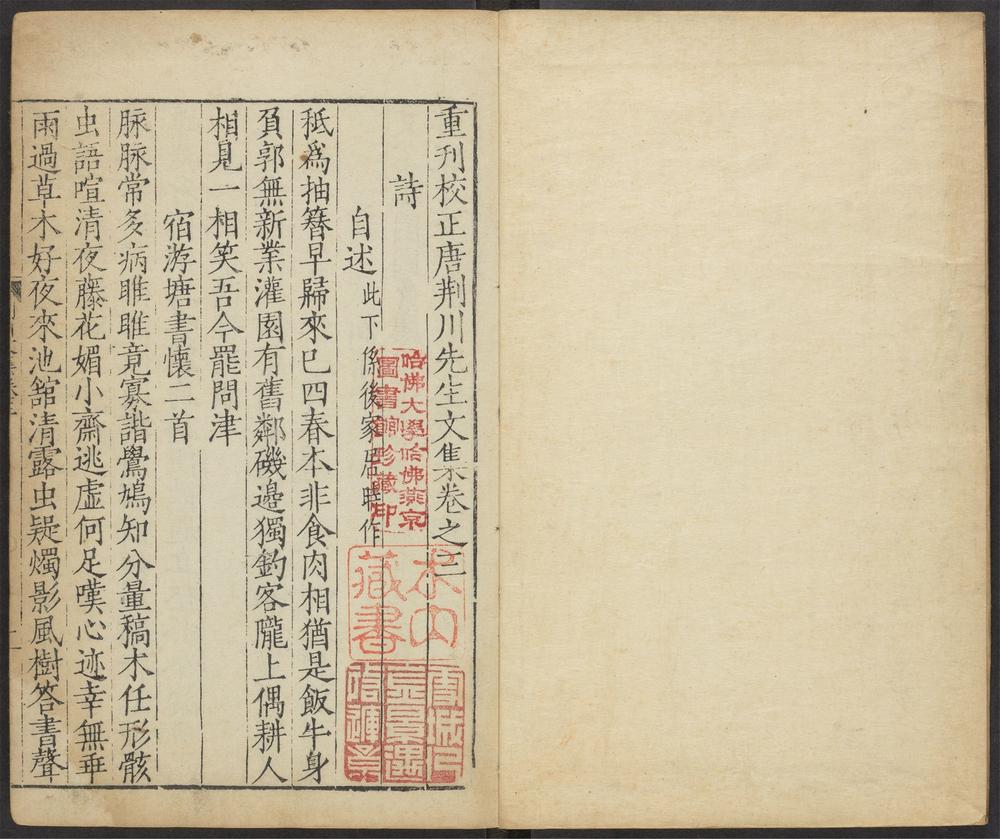 重刊校正唐荊川先生文集卷之三
詩
自述此下係後家居時作
秪爲抽簪早歸來已四春本非食肉相猶是飯牛身
負郭無新業灌園有舊鄰磯邊獨釣客隴上偶耕人
相見一相笑吾今罷問津
宿游塘書懷二首
脉脉常多病睢睢竟寡諧鷽鳩知分量稿木任形骸
虫語喧清夜藤花媚小齋逃虛何足嘆心迹幸無乖
雨過草木好夜來池舘清露虫疑燭影風樹答書聲
哈佛大學哈佛燕京
圖書館珍藏印
藏書